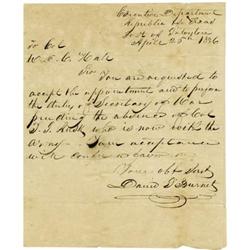 Executive Department
Republic of Texas
Port of Galveston
April 25th 1836
To Col
W. G. C. Hall
Sir You are requested to
accept the appointment and to perform
the duties of Secretary of War
pending the absence of Col
T. J. Rusk who is now with the
Army - Your acceptance
will confer a favor
Your obt Servt
David G Burnet